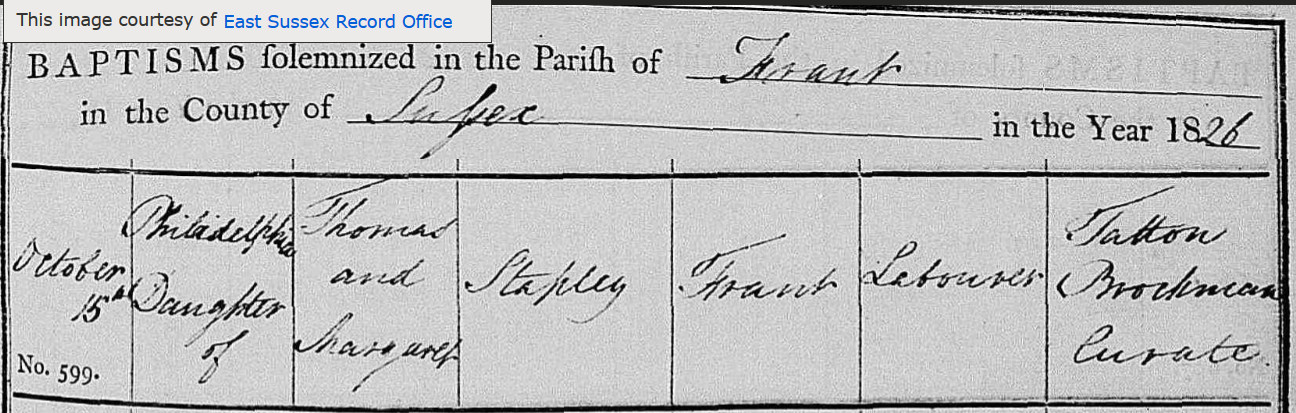 This image courtesy of East Sussex Record Office
BAPTISMS ſolemnized in the Pariſh of Frant
in the County of Suſsex in the Year 1826
October
15th
No. 599.
Philadelphia
Daughter
of
Thomas
and
Margaret
Stapley
Frant
Labourer
Tatton
Brockman
Curate.